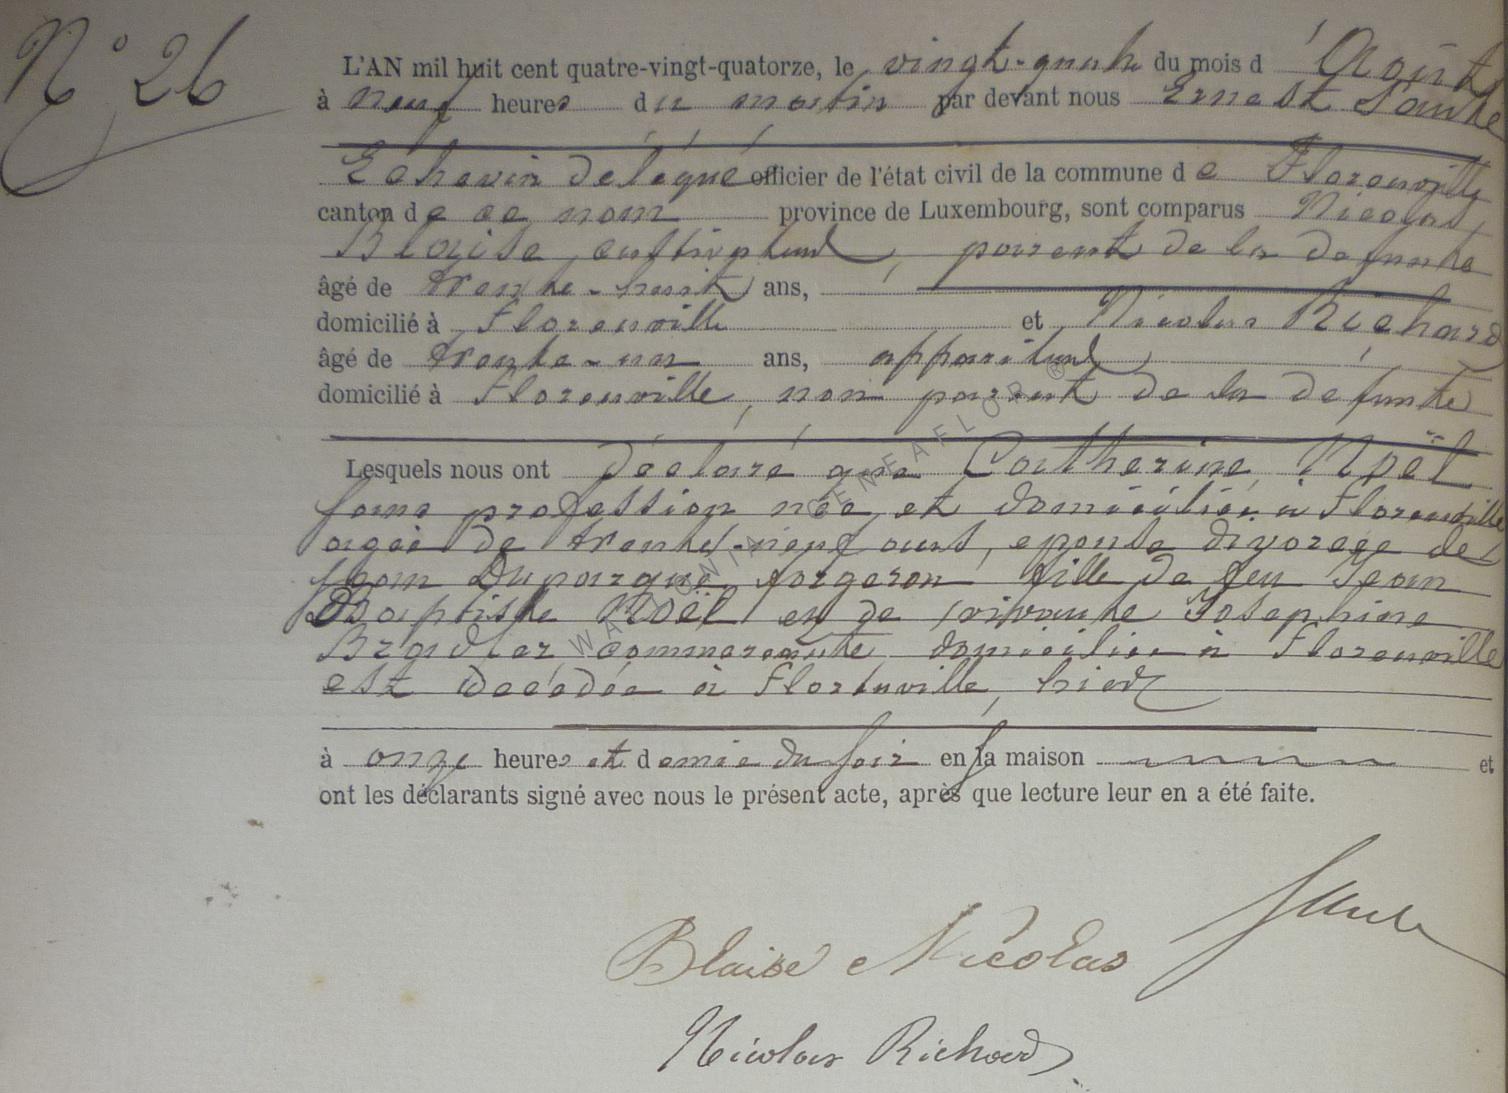 N° 26
L'AN mil huit cent quatre-vingt-quatorze, le vingt-quatre du mois d'Août
à neuf heures du matin par devant nous Ernest
Echevin délégué officier de l'état civil de la commune de Florenville
canton de ce nom province de Luxembourg, sont comparus Nicolas
Blaise, cultivateur, parent de la defunte
âgé de trente-huit ans,
domicilié à Florenville et Nicolas Richard
âgé de trente-un ans, appariteur
domicilié à Florenville, non parent de la defunte
Lesquels nous ont déclaré que Catherine Noël
sans profession née et domiciliée à Florenville
agée de trente-neuf ans, epouse divorcée de
Jean Duparque forgeron fille de feu Jean
Baptiste Noël et de vivante Josephine
Bradfer commercante domiciliée à Florenville
est decédée à Florenville, hier
à onze heures et demie du soir en sa maison et
ont les déclarants signé avec nous le présent acte, après que lecture leur en a été faite.
WALLONIA GENEAFLOR ®
Blaise Nicolas
Nicolas Richard